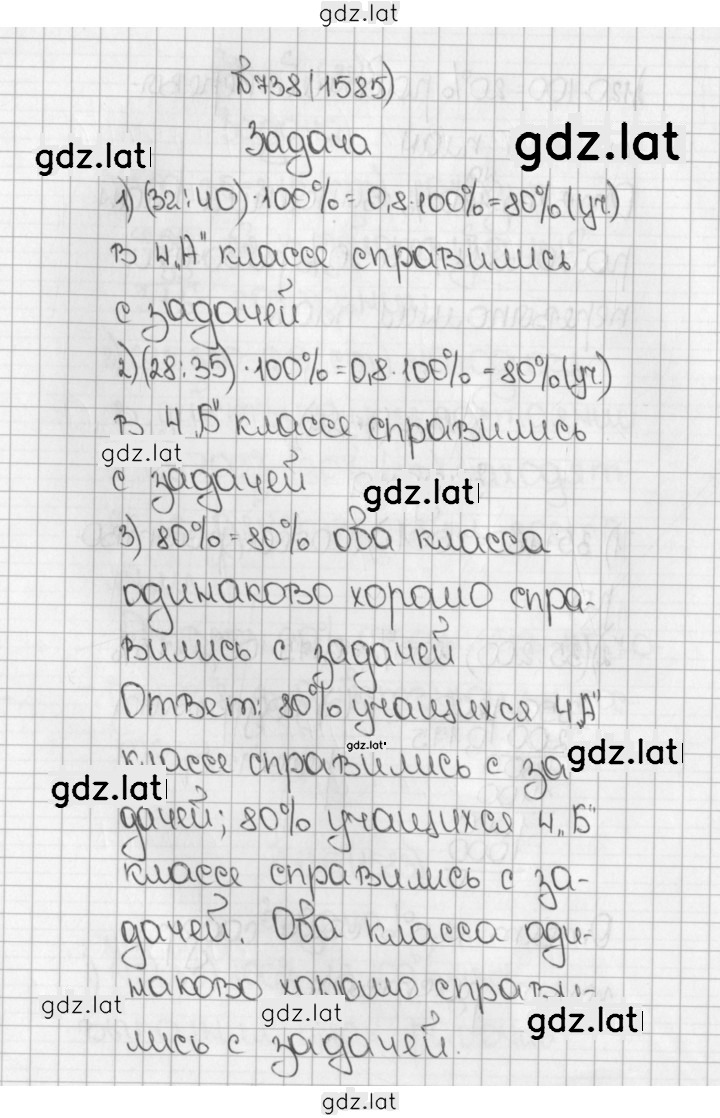 gdz.lat
№738(1585)
Задача
gdz.lat
gdz.lat
1) (32:40)·100%=0,8·100%=80%(уч.)
в 4„А" классе справились
с задачей
2) (28:35)·100%=0,8·100%=80%(уч.)
в 4„Б" классе справились
gdz.lat
с задачей
gdz.lat
3) 80%=80% оба класса
одинаково хорошо спра-
вились с задачей
Ответ: 80% учащихся 4„А"
gdz.lat
классе справились с за
gdz.lat
gdz.lat
дачей; 80% учащихся 4„Б"
классе справились с за-
дачей. Оба класса оди-
наково хорошо справи-
gdz.lat
gdz.lat
gdz.lat
лись с задачей.
gdz.lat